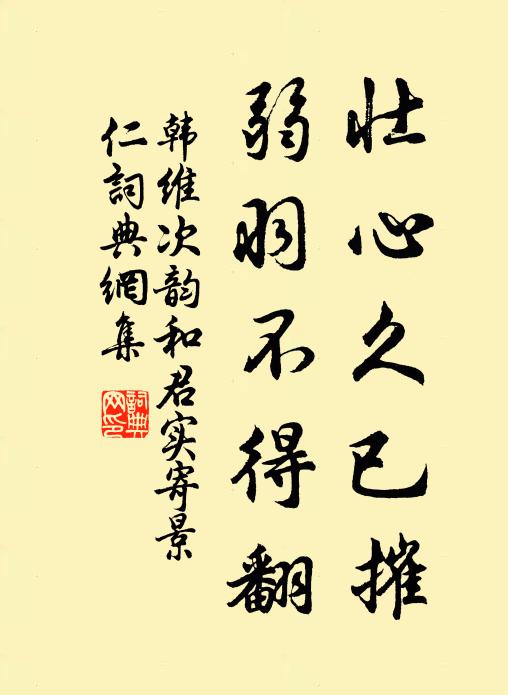 壮心久已摧
弱羽不得翻
韩维次韵和君实寄景
仁詞典網集
詞典网印